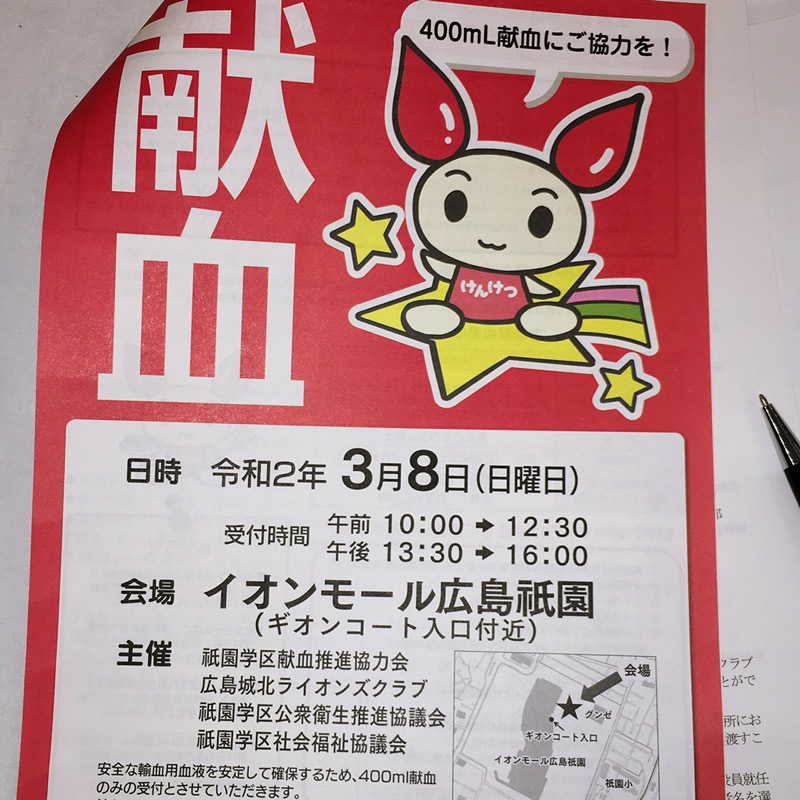 献血
400mL献血にご協力を！
けんけつ
日時 令和2年 3月8日(日曜日)
受付時間 午前 10:00 ➡ 12:30
午後 13:30 ➡ 16:00
会場 イオンモール広島祇園
(ギオンコート入口付近)
主催 祇園学区献血推進協力会
広島城北ライオンズクラブ
祇園学区公衆衛生推進協議会
祇園学区社会福祉協議会
会場
グンゼ
ギオンコート入口
イオンモール広島祇園
祇園小
安全な輸血用血液を安定して確保するため、400ml献血
のみの受付とさせていただきます。
クラブ
とがで
所にお
渡すこ
役員就任